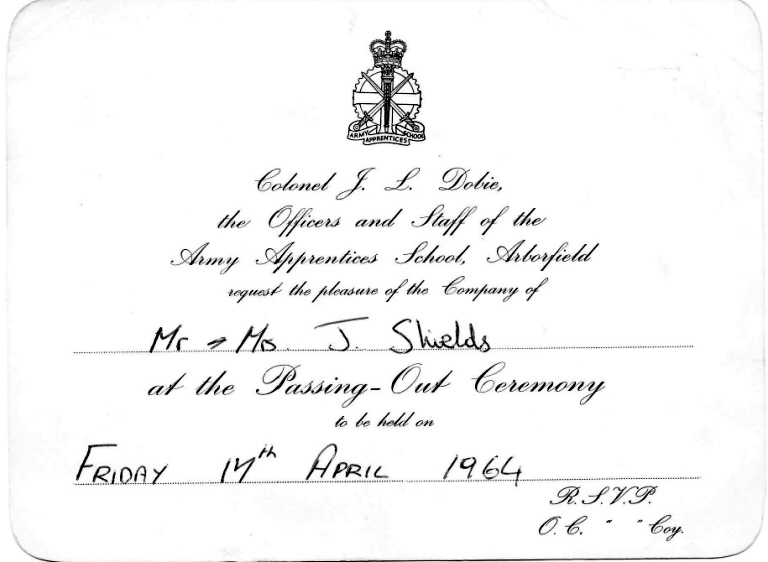 ARMY APPRENTICES SCHOOL
Colonel J. L. Dobie,
the Officers and Staff of the
Army Apprentices School, Arborfield
request the pleasure of the Company of
Mr & Mrs. J. Shields
at the Passing-Out Ceremony
to be held on
FRIDAY 17th APRIL 1964
R.S.V.P.
O.C. " " Coy.